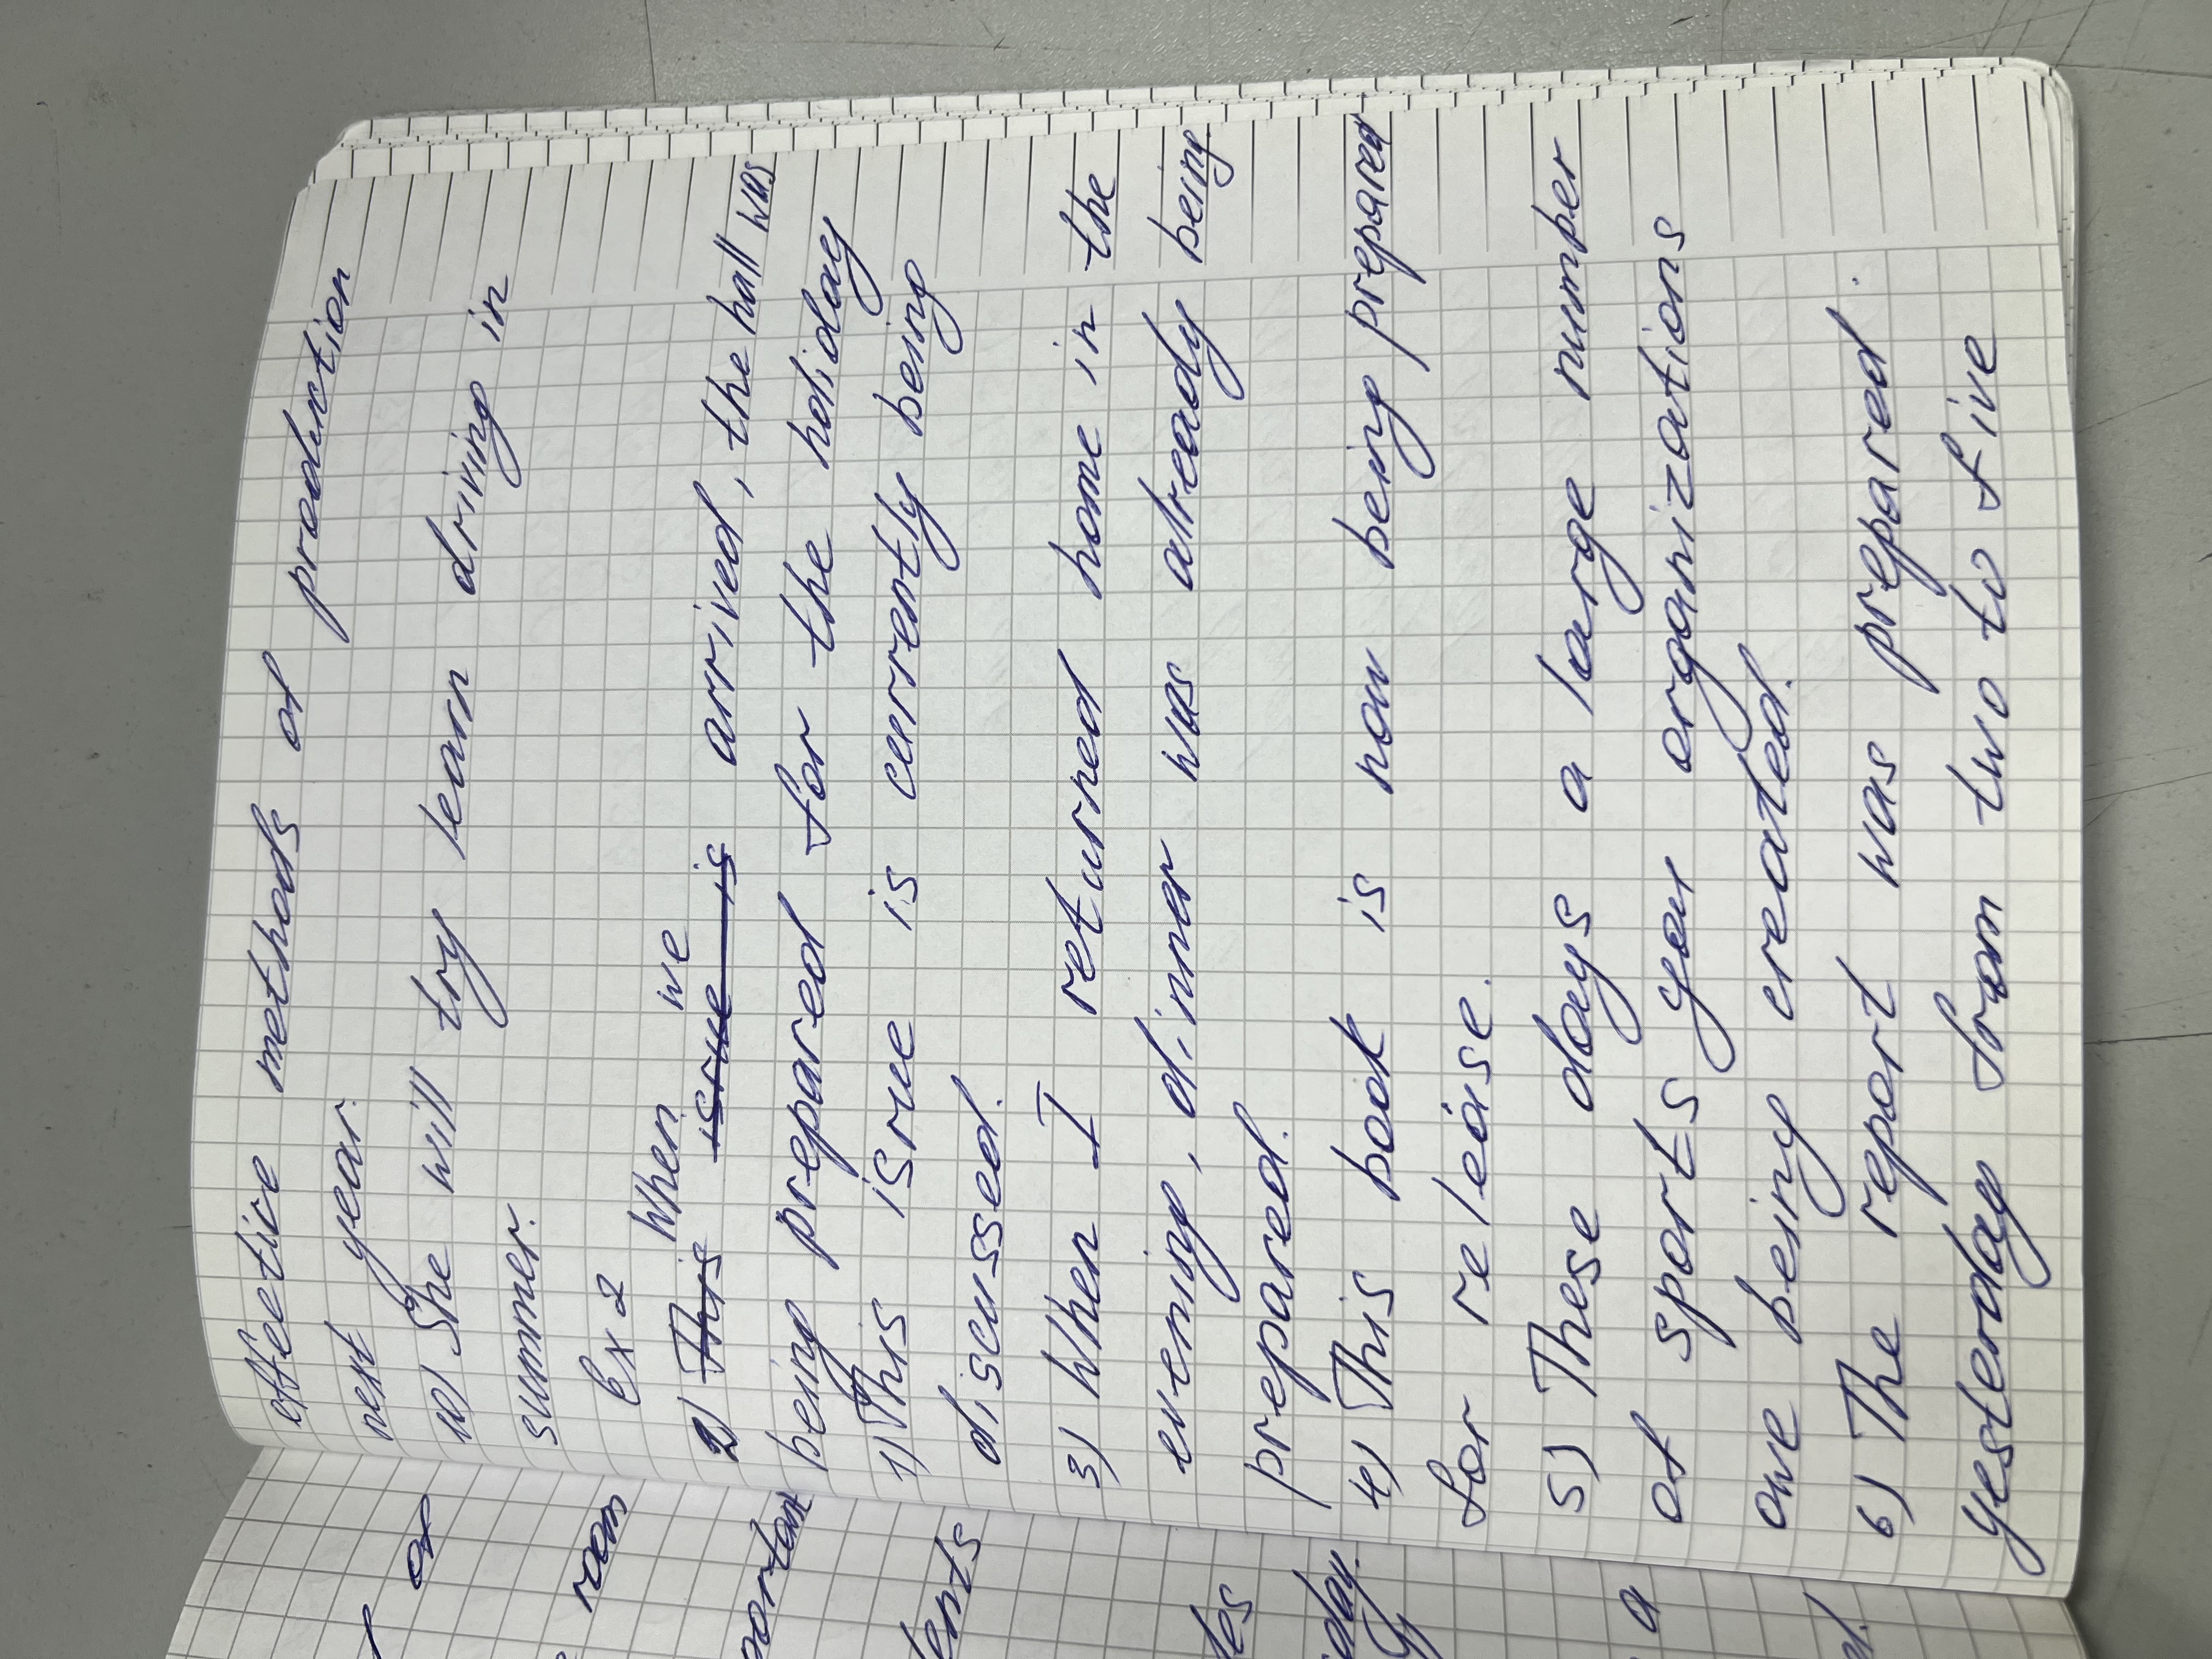 effective methods of production
next year.
10) She will try learn driving in
summer.
Ex 2
2) This When issue is we arrived, the hall was
being prepared for the holiday
1) This issue is currently being
discussed.
3) When I returned home in the
evening, dinner was already being
prepared.
4) This book is now being prepared
for releise.
5) These days a large number
of sports organizations
are being created.
6) The report was prepared.
yesterday from two to five
of
room
dents
day.
a